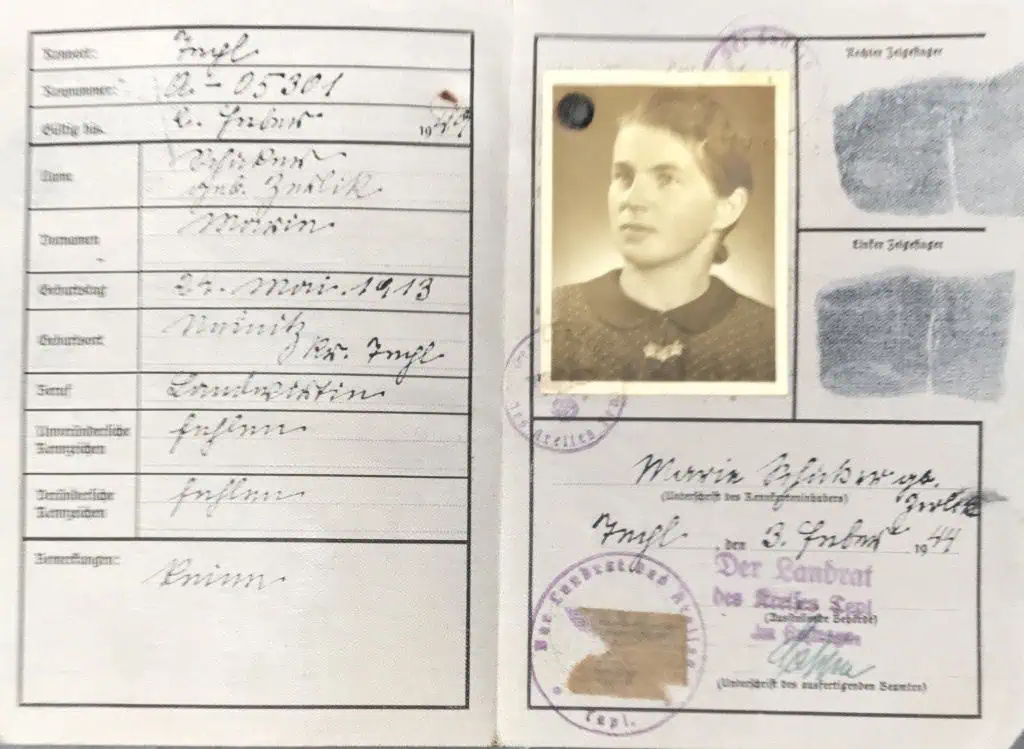 Kennort: Tepl
Kennummer: A-05301
Gültig bis 19 49
Name
geb. Zerlik
Vornamen Marie
Geburtstag 27. Mai 1913
Geburtsort
Kr. Tepl
Beruf Landwirtin
Unveränderliche Kennzeichen fehlen
Veränderliche Kennzeichen fehlen
Bemerkungen: Keine
Rechter Zeigefinger
Linker Zeigefinger
Marie
Zerlik
(Unterschrift des Kennkarteninhabers)
Tepl, den 3. 19 44
Der Landrat
des Kreises Tepl
(Ausstellende Behörde)
(Unterschrift des ausfertigenden Beamten)
Der Landrat des Kreises
Tepl.